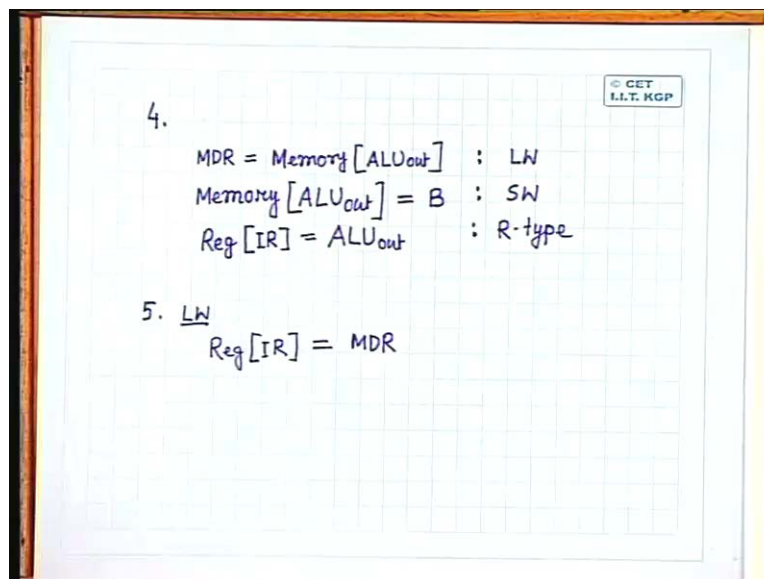 © CET
I.I.T. KGP
4.
MDR = Memory [ALUout] : LW
Memory [ALUout] = B : SW
Reg [IR] = ALUout : R-type
5. LW
Reg [IR] = MDR